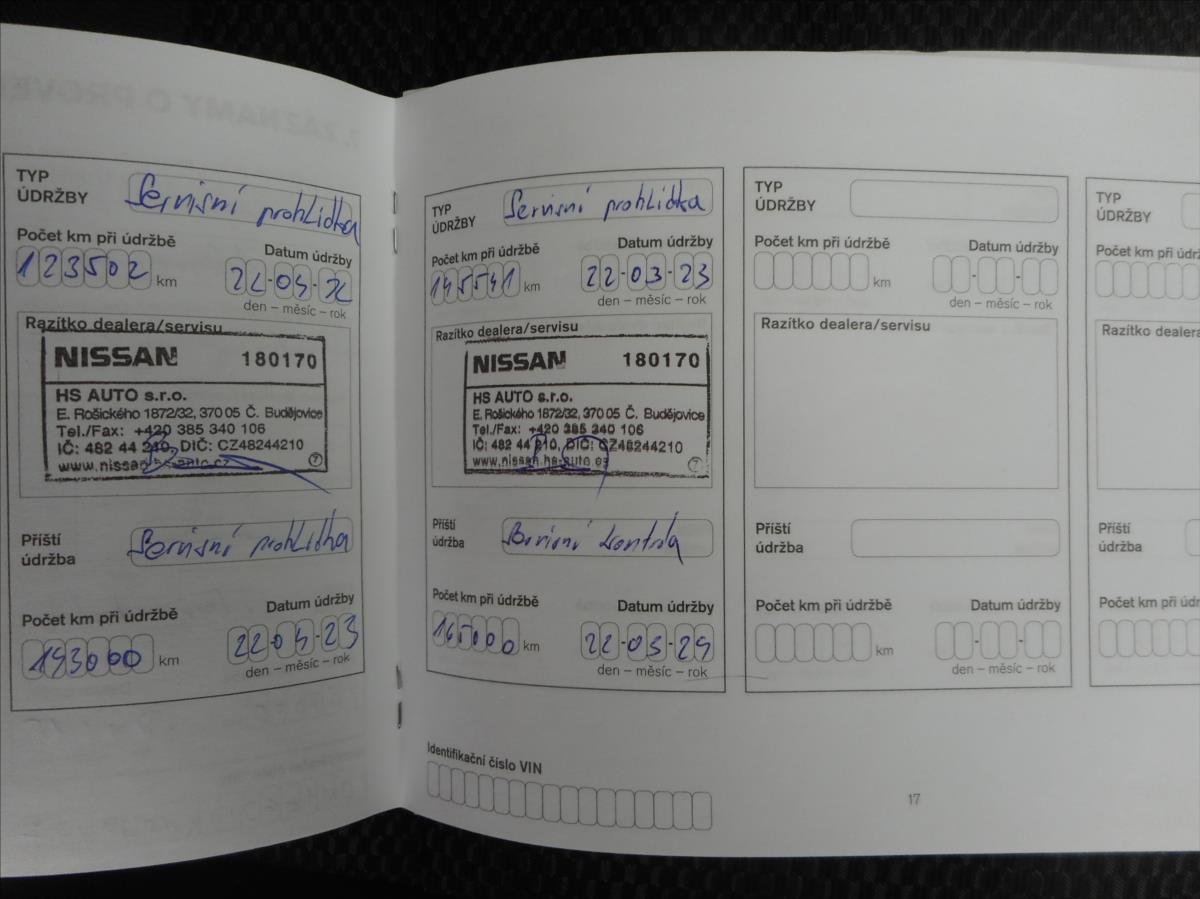 TYP
ÚDRŽBY
Servisní prohlídka
Počet km při údržbě
123502 km
Datum údržby
den – měsíc – rok
Razítko dealera/servisu
NISSAN 180170
HS AUTO s.r.o.
E. Rošického 1872/32, 370 05 Č. Budějovice
Tel./Fax: +420 385 340 106
IČ: 482 44 210, DIČ: CZ48244210
www.nissan.hs-auto.cz 7
Příští
údržba
Servisní prohlídka
Počet km při údržbě
143000 km
Datum údržby
22-04-23
den – měsíc – rok
TYP
ÚDRŽBY
Servisní prohlídka
Počet km při údržbě
145541 km
Datum údržby
22-03-23
den – měsíc – rok
Razítko dealera/servisu
NISSAN 180170
HS AUTO s.r.o.
E. Rošického 1872/32, 370 05 Č. Budějovice
Tel./Fax: +420 385 340 106
IČ: 482 44 210, DIČ: CZ48244210
www.nissan.hs-auto.cz 7
Příští
údržba
Počet km při údržbě
165000 km
Datum údržby
22-03-24
den – měsíc – rok
Identifikační číslo VIN
TYP
ÚDRŽBY
Počet km při údržbě
km
Datum údržby
den – měsíc – rok
Razítko dealera/servisu
Příští
údržba
Počet km při údržbě
km
Datum údržby
den – měsíc – rok
17
TYP
ÚDRŽBY
Počet km při údr
Razítko dealera
Příští
údržba
Počet km při údr